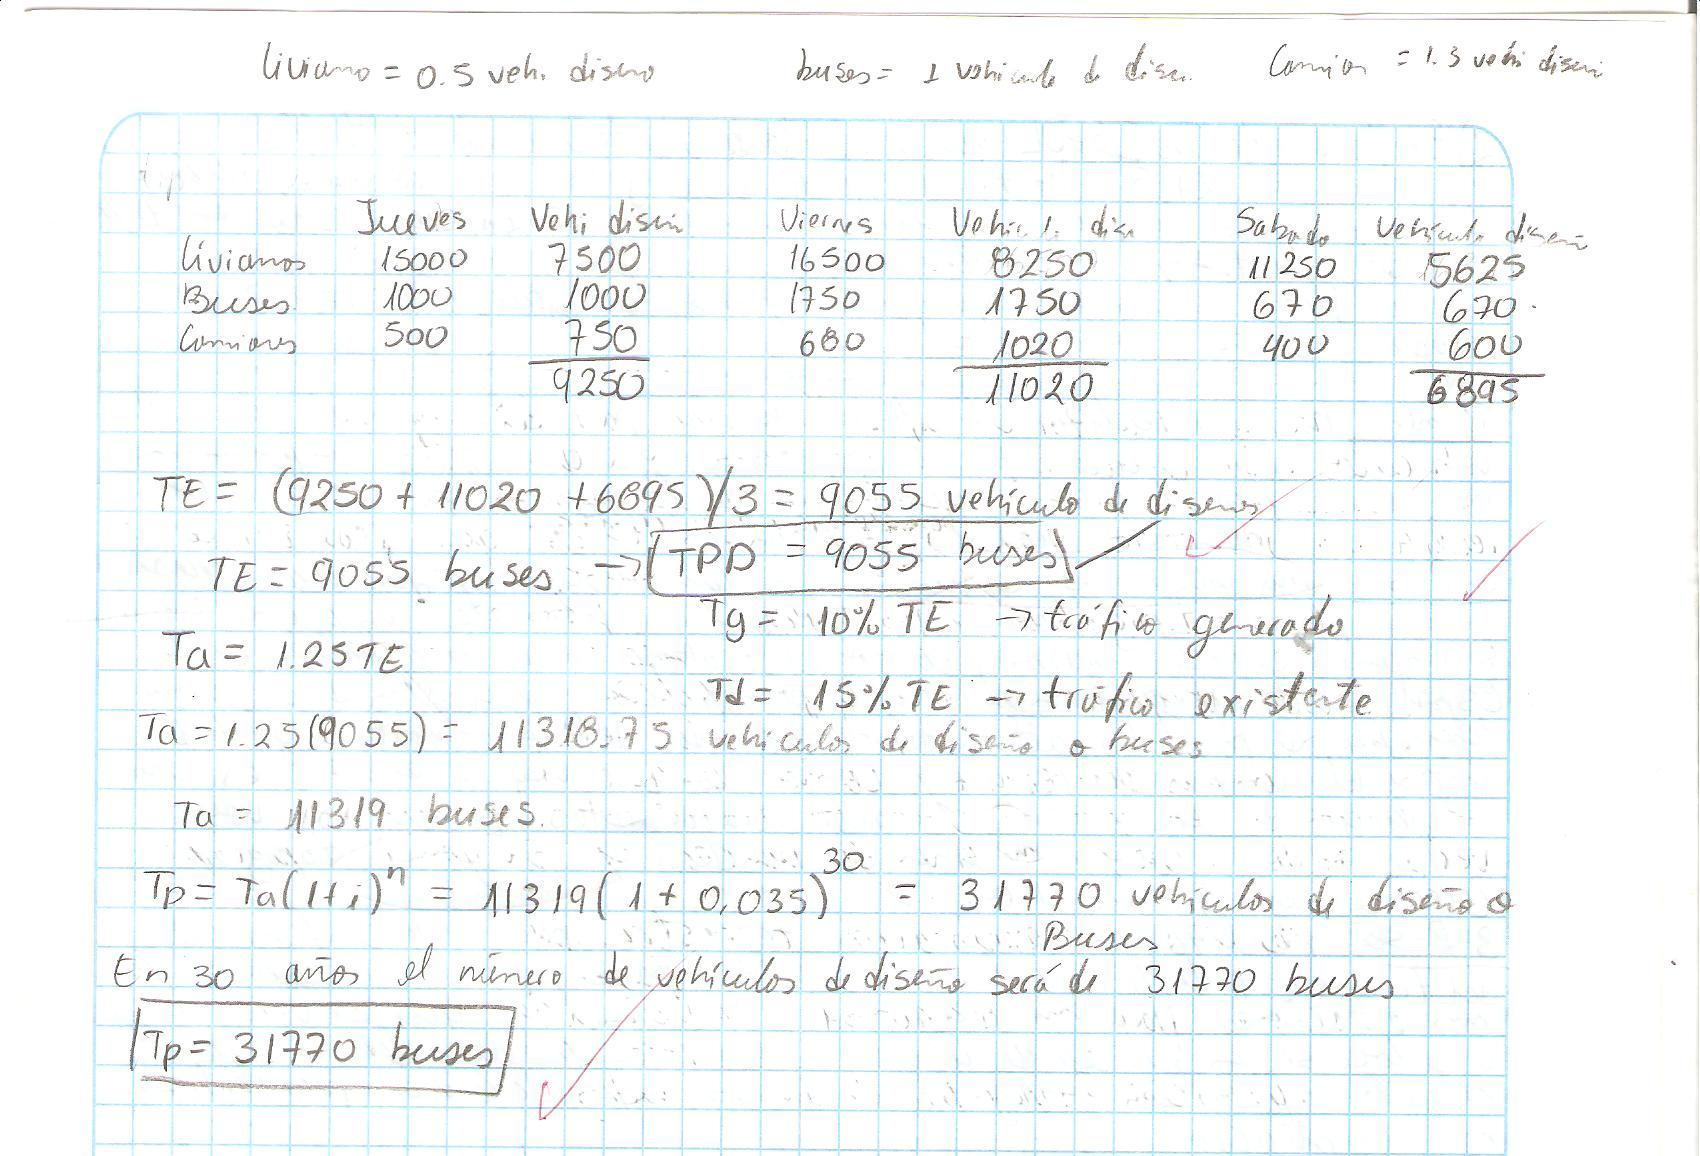 Liviano = 0.5 veh. diseño buses = 1 vehiculo de Camion = 1.5 vehi
Jueves Vehi Viernes Sabado Vehiculo diseño
Livianos 15000 7500 16500 8250 11250 5625
Buses 1000 1000 1750 1750 670 670
Camiones 500 750 680 1020 400 600
9250 11020 6895
TE = (9250 + 11020 + 6895)/3 = 9055 vehículo de diseños
TE = 9055 buses → TPD = 9055 buses
Tg = 10% TE → tráfico generado
Ta = 1.25TE
Td = 15% TE → tráfico existente
Ta = 1.25(9055) = 11318.75 vehículos de diseño o buses
Ta = 11319 buses.
Tp = Ta(1+i)ⁿ = 11319(1 + 0,035)³⁰ = 31770 vehículos de diseño o
Buses
En 30 años el número de vehículos de diseño será de 31770 buses
Tp = 31770 buses